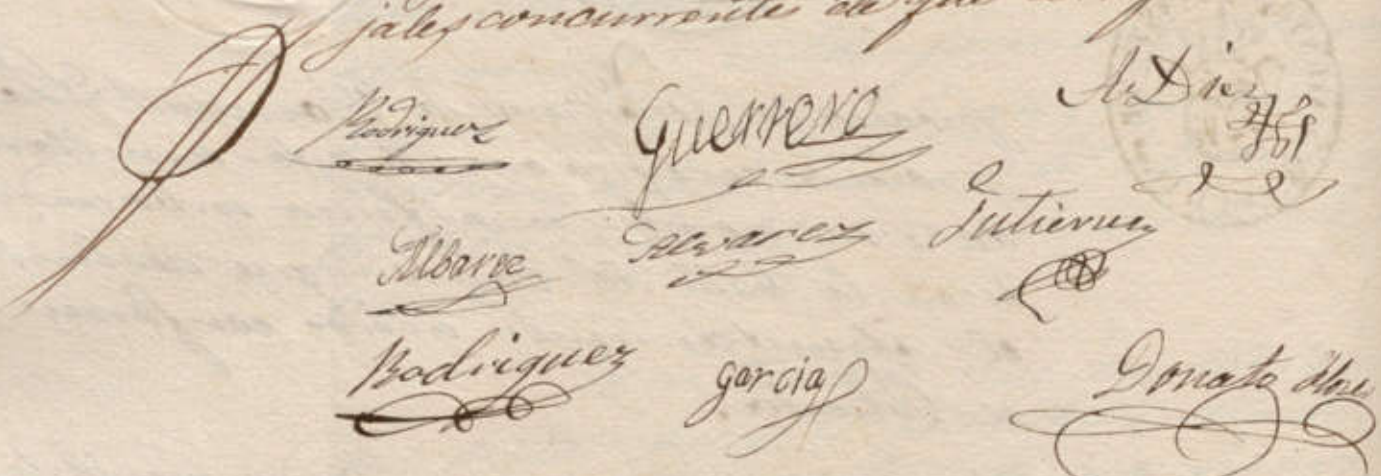 jales concurrentes de que
Rodriguez Guerrero A. Diez
Albarez Alvarez Gutierrez
Rodriguez Garcia Donato Flores